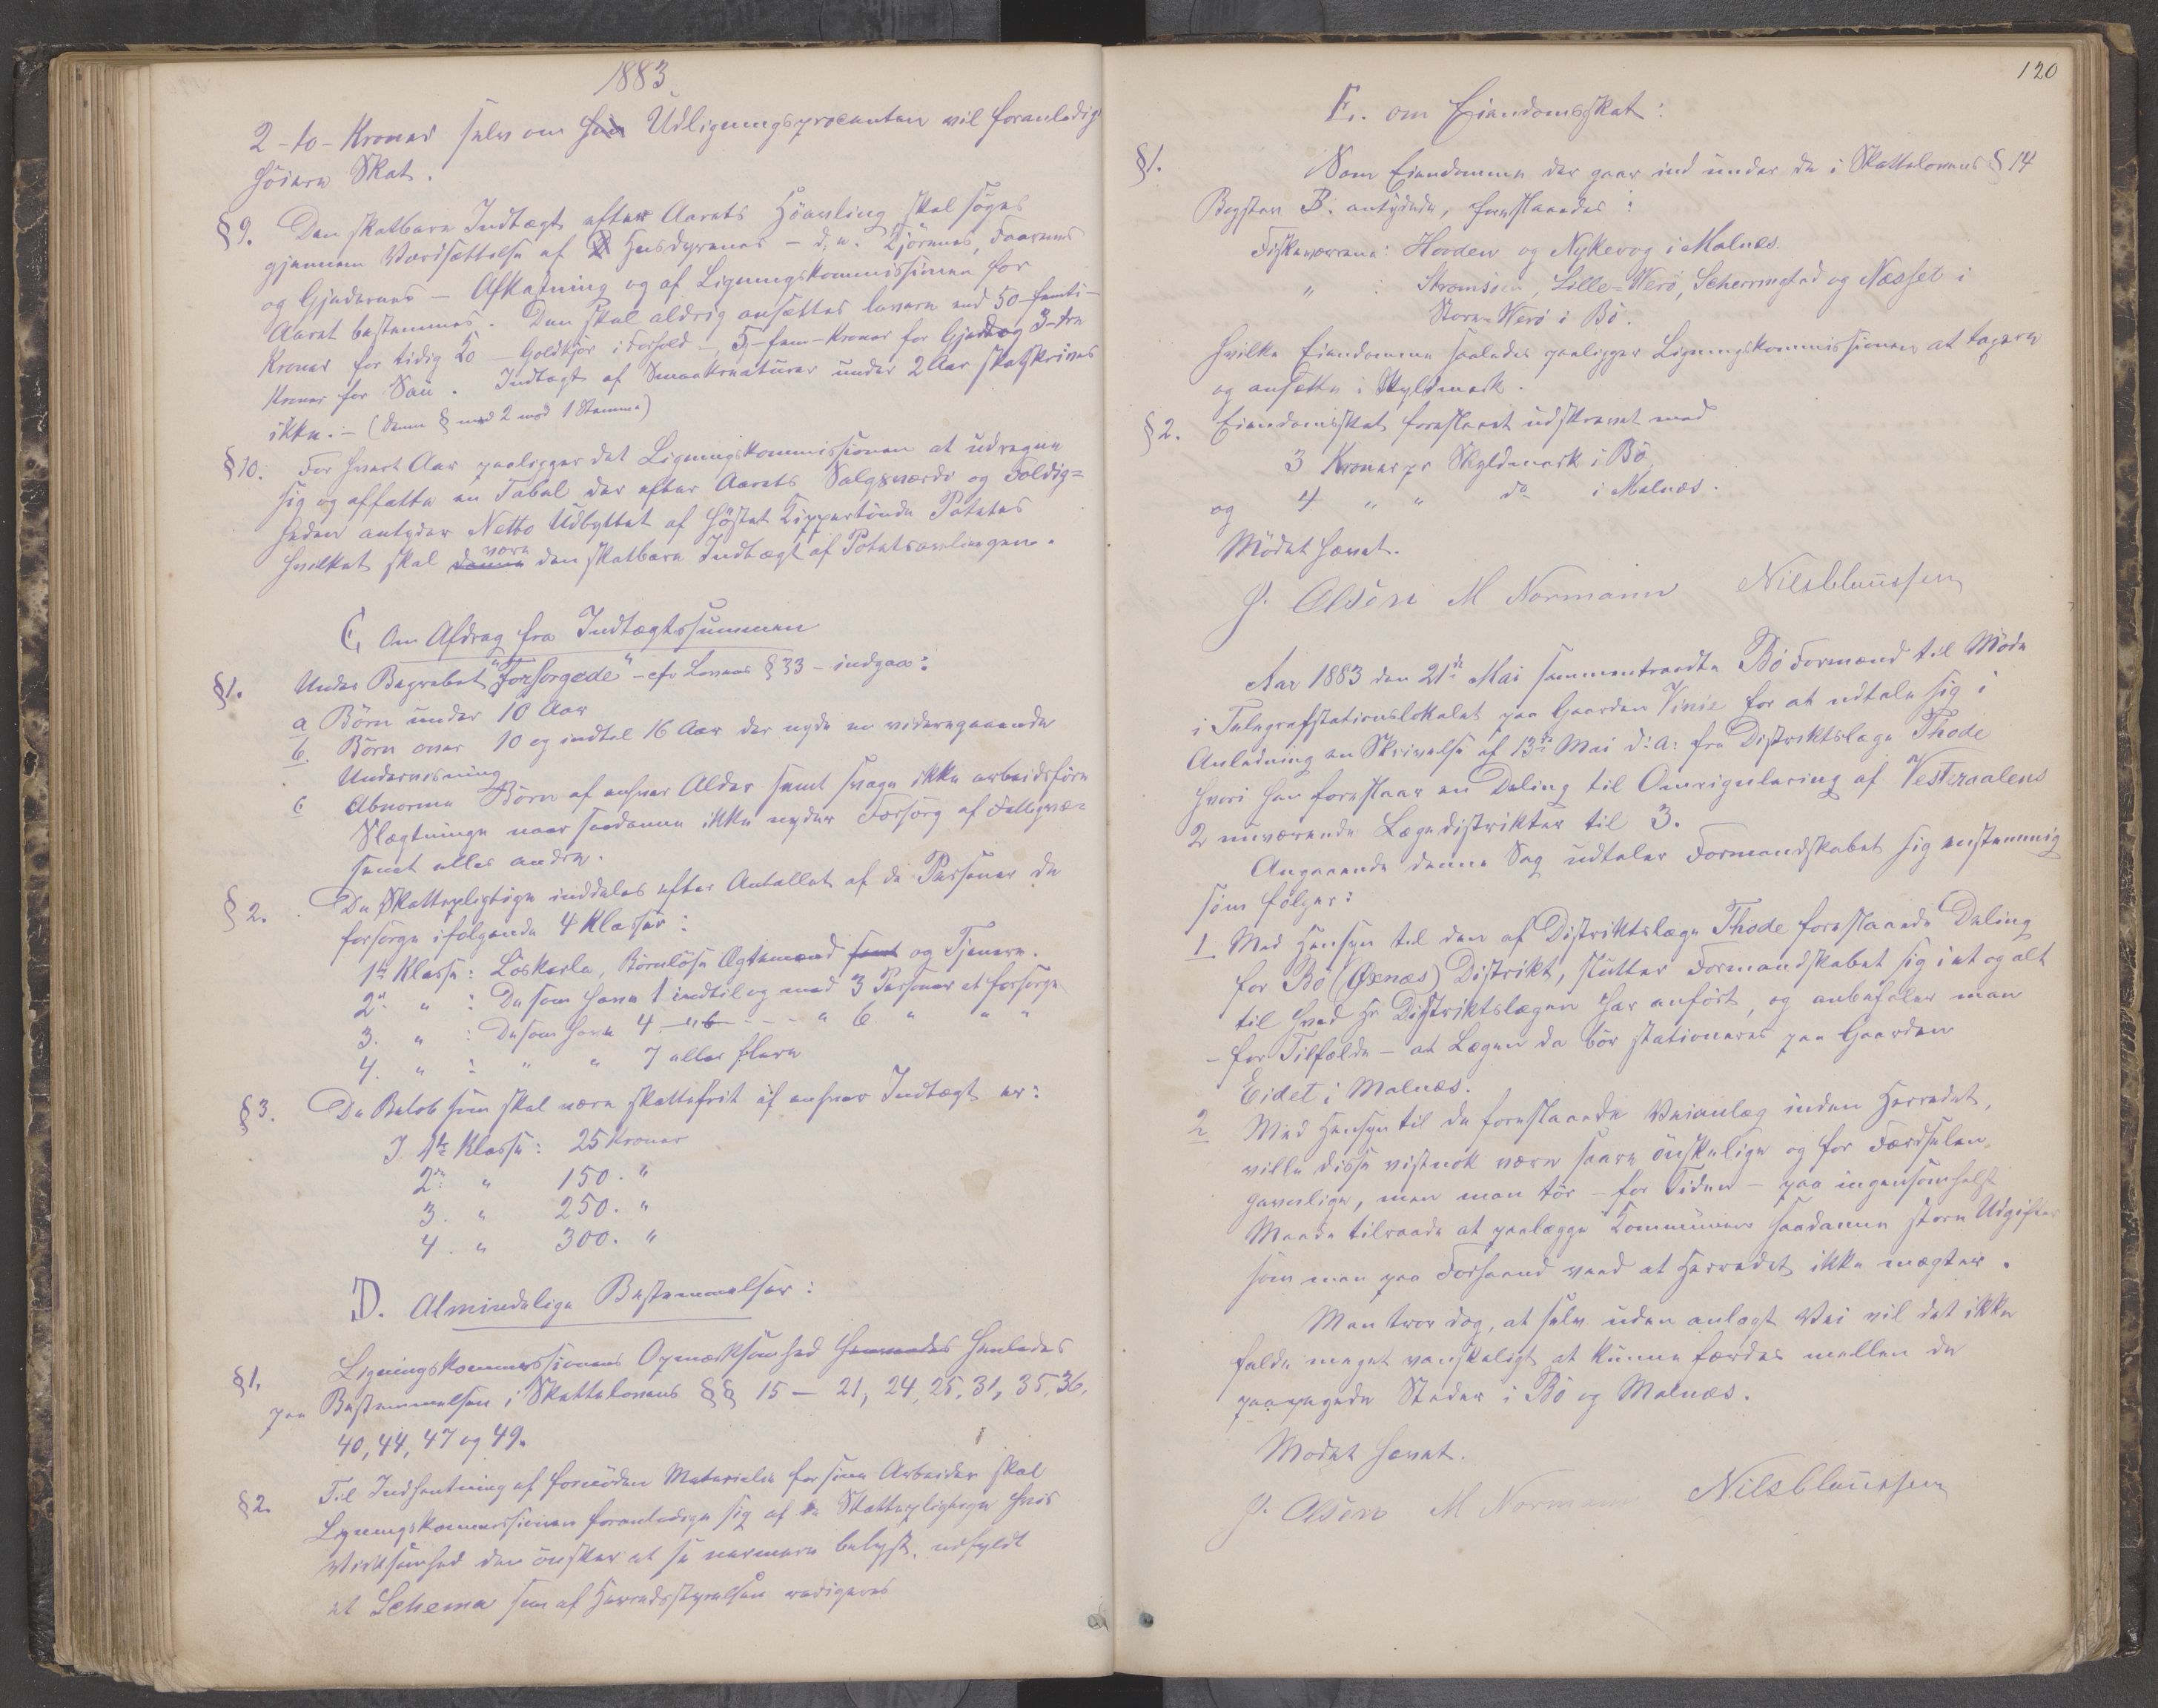 1883
2 -to- Kroner selv om Udligningsprocenten vil foranledige
höiere Skat.
§ 9. Den skatbare Indtægt efter Aarets Höavling skal söges
gjennem Værdsættelse af Husdyrenes - d.e. Kjörenes, Faarenes
og Gjedernes - Afkastning og af Ligningskommissionen for
Aaret bestemmes. Den skal aldrig ansættes lavere end 50-femti-
Kroner for tidig Ko - Goldkjör i Forhold -, 5,-fem-Kroner for Gjed og 3-tre
Kroner for Sau. Indtægt af Smaakreaturer under 2 Aar skatskrives
ikke. - (Denne § med 2 mod 1 Stemme)
§ 10. For hvert Aar paaligger det Ligningskommissionen at udregne
sig og affatte en Tabel der efter Aarets Salgsværdi og Foldig=
heden antyder Netto Udbyttet af höstet Kippertönde Potetes
hvilket skal denne være den skatbare Indtægt af Potetsavlingen.
C, Om Afdrag fra Indtægtssummen
§ 1. Under Begrebet "Forsorgede" - cfr Lovens § 33 - indgaa:
a Börn under 10 Aar
b. Börn over 10 og indtil 16 Aar der nyde en videregaaende
Undervisning
c Abnorme Börn af enhver Alder samt svage ikke arbeidsföre
Slægtninge naar saadanne ikke nyder Forsorg af Fattigvæ-
senet eller andre.
§ 2. De Skattepligtige inddeles efter Antallet af de Personer de
forsorge i folgende 4 Klasser:
1ste Klasse: Löskarle, Barnlöse Ægtemænd samt og Tjenere.
2den " : De som have 1 indtil og med 3 Personer at forsorge
3. " : De som have 4 - " 6 - - - " 6 " " "
4. " : " " 7 eller flere
§ 3. De Belöb som skal være skattefrit af enhver Indtægt er:
I 1ste Klasse: 25 Kroner
2den " 150. "
3. " 250. "
4. " 300. "
D. Almindelige Bestemmelser:
§ 1, Ligningskommissionens Opmærksomhed henvendes henledes
paa Bestemmelsen i Skattelovens §§ 15 - 21, 24, 25, 31, 35, 36,
40, 44, 47 og 49.
§ 2. Til Indhentning af fornöden Materiale for sine Arbeider skal
Ligningskommissionen foranledige sig af de Skattepligtige hvis
Virksomhed den önsker at se nærmere belyst, udfyldt
et Schema som af Herredsstyrelsen redigeres
120
E. om Eiendomsskat:
§ 1. Som Eiendomme der gaar ind under de i Skattelovens § 14
Bogstav B. antydede, foreslaaedes:
Fiskeværene: Hovden og Nykevog i Malnes.
" : Skromsöen, Lille=Verö, Scherringstad og Næsset i
Store=Verö i Bö.
hvilke Eiendomme saaledes paaligger Ligningskommissionen at taxere
og ansætte i Skyldmark.
§ 2. Eiendomsskat foreslaaet udskrevet med
3 Kroner pr Skyldmark i Bö
og 4 " " do i Malnæs.
Mödet hævet.
P. Olsen M Normann Nils Claussen
Aar 1883 den 21de Mai sammentraadte Bö Formænd til Möde
i Telegrafstationslokalet paa Gaarden Vinie for at udtale sig i
Anledning en Skrivelse af 13de Mai d: A: fra Distriktslæge Thode
hvori han foreslaar en Deling til Omregulering af Vesteraalens
2 nuværende Lægedistrikter til 3.
Angaaende denne Sag udtaler Formandskabet sig enstemmig
som fölger:
1. Med Hensyn til den af Distriktslæge Thode foreslaaede Deling
for Bö (Öxnæs) Distrikt, slutter Formandskabet sig i et og alt
til hvad Hr Distriktslægen har anfört, og anbefaler man
- for Tilfælde - at Lægen da bör stationeres paa Gaarden
Eidet i Malnæs.
2 Med Hensyn til de foreslaaede Veianlæg inden Herredet,
ville disse vistnok være saare önskelige og for Færdselen
gavnlige, men man tör - for Tiden - paa ingensomhelst
Maade tilraade at paalægge Kommunen saadanne store Udgifter
som man paa Forhaand veed at Herredet ikke mægter.
Man tror dog, at selv uden anlagt Vei vil det ikke
falde meget vanskeligt at kunne færdes mellem de
paapegede Steder i Bö og Malnæs.
Mödet hævet.
P. Olsen M Normann Nils Claussen